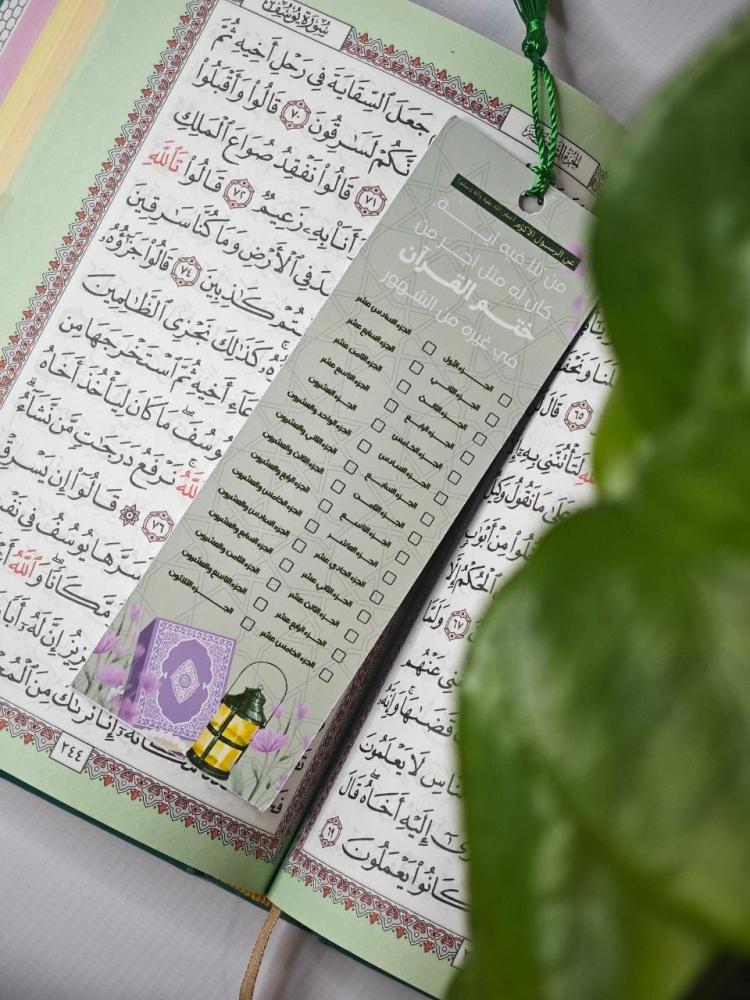 سُورَةُ يُوسُفَ
جَعَلَ ٱلسِّقَايَةَ فِى رَحْلِ أَخِيهِ ثُمَّ
لَسَٰرِقُونَ ٧٠ قَالُوا۟ وَأَقْبَلُوا۟
٧١ قَالُوا۟ نَفْقِدُ صُوَاعَ ٱلْمَلِكِ
وَأَنَا۠ بِهِۦ زَعِيمٌ ٧٢ قَالُوا۟ تَٱللَّهِ
فِى ٱلْأَرْضِ وَمَا كُنَّا سَٰرِقِينَ
كَٰذِبِينَ ٧٤ قَالُوا۟ جَزَٰٓؤُهُۥ
كَذَٰلِكَ نَجْزِى ٱلظَّٰلِمِينَ
أَخِيهِ ثُمَّ ٱسْتَخْرَجَهَا مِن
مَا كَانَ لِيَأْخُذَ أَخَاهُ
ٱللَّهُ نَرْفَعُ دَرَجَٰتٍ مَّن نَّشَآءُ
٧٦ قَالُوٓا۟ إِن يَسْرِقْ
يُوسُفُ فِى
مَّكَانًا وَٱللَّهُ
إِنَّ لَهُۥٓ
مَكَانَهُۥٓ إِنَّا نَرَىٰكَ مِنَ
٢٤٤
عن الرسول الأكرم (صلى الله عليه وآله وسلم)
من تلا فيه آيـــة
كان له مثل أجر من
ختـم القـرآن
في غيره من الشهور
الجـــزء الأول
الجـــزء الثاني
الجـــزء الثالث
الجـــزء الرابع
الجـزء الخامس
الجزء السادس
الجـزء السابع
الجـزء الثامـــن
الجزء التاسـع
الجـزء العاشـــر
الجزء الحادي عشر
الجزء الثاني عشر
الجزء الثالث عشر
الجـزء الرابع عشر
الجزء الخامس عشر
الجزء السادس عشر
الجزء السابع عشر
الجزء الثامن عشر
الجزء التاسع عشر
الجزء العشرون
الجزء الواحد والعشرون
الجزء الثاني والعشرون
الجزء الثالث والعشرون
الجزء الرابع والعشرون
الجزء الخامس والعشرون
الجزء السادس والعشرون
الجزء السابع والعشرون
الجزء الثامن والعشرون
الجزء التاسع والعشرون
الجـــزء الثلاثون
٦٥ قَالَ
لَتَأْتُنَّنِى بِهِۦٓ
عَلَىٰ مَا نَقُولُ وَكِيلٌ
مِنْ أَبْوَٰبٍ
ٱلْحُكْمُ إِلَّا
٦٧ وَلَمَّا
عَنْهُم
قَضَىٰهَا وَإِنَّهُۥ
ٱلنَّاسِ لَا يَعْلَمُونَ
إِلَيْهِ أَخَاهُ قَالَ
كَانُوا۟ يَعْمَلُونَ ٦٩